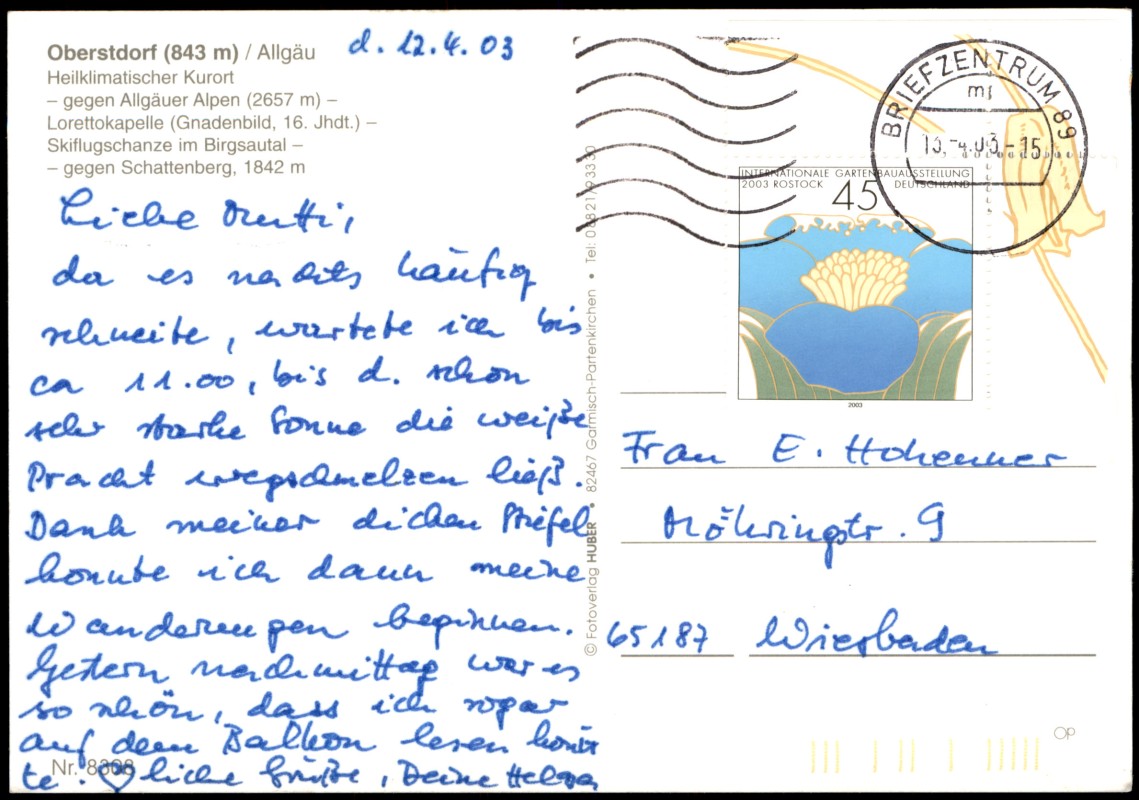 Oberstdorf (843 m) / Allgäu
Heilklimatischer Kurort
– gegen Allgäuer Alpen (2657 m) –
Lorettokapelle (Gnadenbild, 16. Jhdt.) –
Skiflugschanze im Birgsautal –
– gegen Schattenberg, 1842 m
d. 12.4.03
Liebe Mutti,
da es nachts häufig
schneite, wartete ich bis
ca 11.00, bis d. schon
sehr starke Sonne die weiße
Pracht wegschmelzen ließ.
Dank meiner dicken Stiefel
konnte ich dann meine
Wanderungen beginnen.
Gestern nachmittag war es
so schön, dass ich sogar
auf dem Balkon lesen konn
te. ♡liche Grüße, Deine Helga
Nr. 8808
© Fotoverlag HUBER • 82467 Garmisch-Partenkirchen • Tel: 08821/93330
BRIEFZENTRUM 89
mj
13.-4.03.-15
INTERNATIONALE GARTENBAUAUSSTELLUNG
2003 ROSTOCK DEUTSCHLAND
45
2003
Frau E.
Möhringstr. 9
65187 Wiesbaden
OP